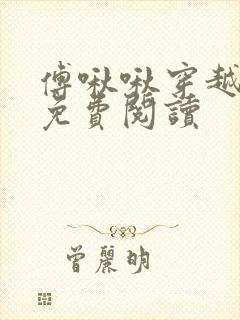 傅啾啾穿越
免費閱讀
曾麗明